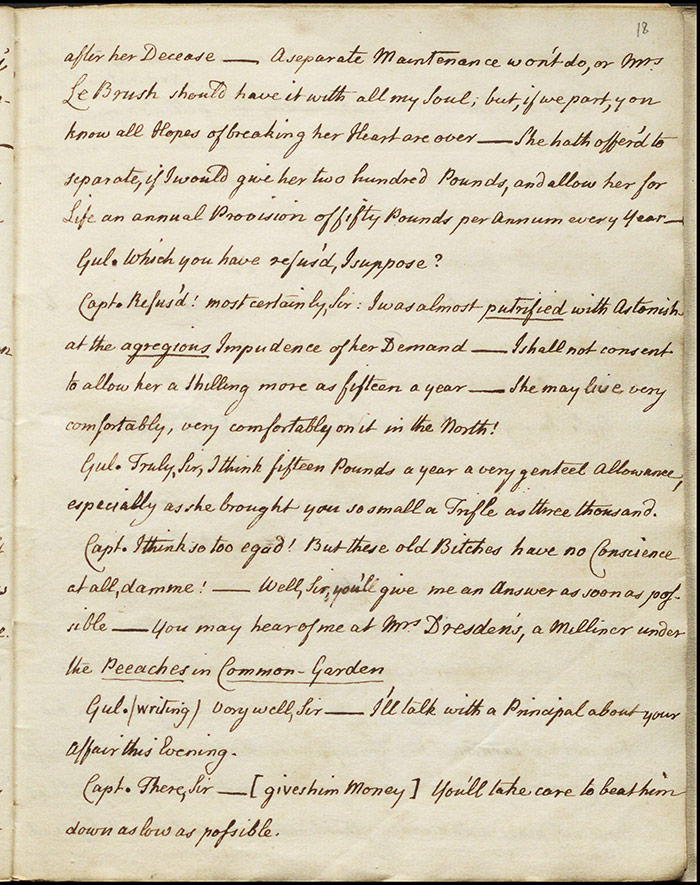 18
after her Decease — A separate Maintenance won't do, or Mrs
Le Brush should have it with all my Soul; but, if we part, you
know all Hopes of breaking her Heart are over — She hath offer'd to
separate, if I would give her two hundred Pounds, and allow her for
Life an annual Provision of fifty Pounds per Annum every Year —
Gul. Which you have refus'd, I suppose?
Capt. Refus'd! most certainly, Sir: I was almost putrified with Astonish
at the agregious Impudence of her Demand — I shall not consent
to allow her a Shilling more as fifteen a year — She may live very
comfortably, very comfortably on it in the North!
Gul. Truly, Sir, I think fifteen Pounds a year a very genteel Allowance,
especially as she brought you so small a Trifle as three thousand.
Capt. I think so too egad! But these old Bitches have no Conscience
at all, damme! — Well, Sir, you'll give me an Answer as soon as pos-
sible — You may hear of me at Mrs Dresden's, a Milliner under
the Peeaches in Common-Garden
Gul. (writing) Very well, Sir — I'll talk with a Principal about your
Affair this Evening.
Capt. There, Sir — [gives him Money] You'll take care to beat him
down as low as possible.